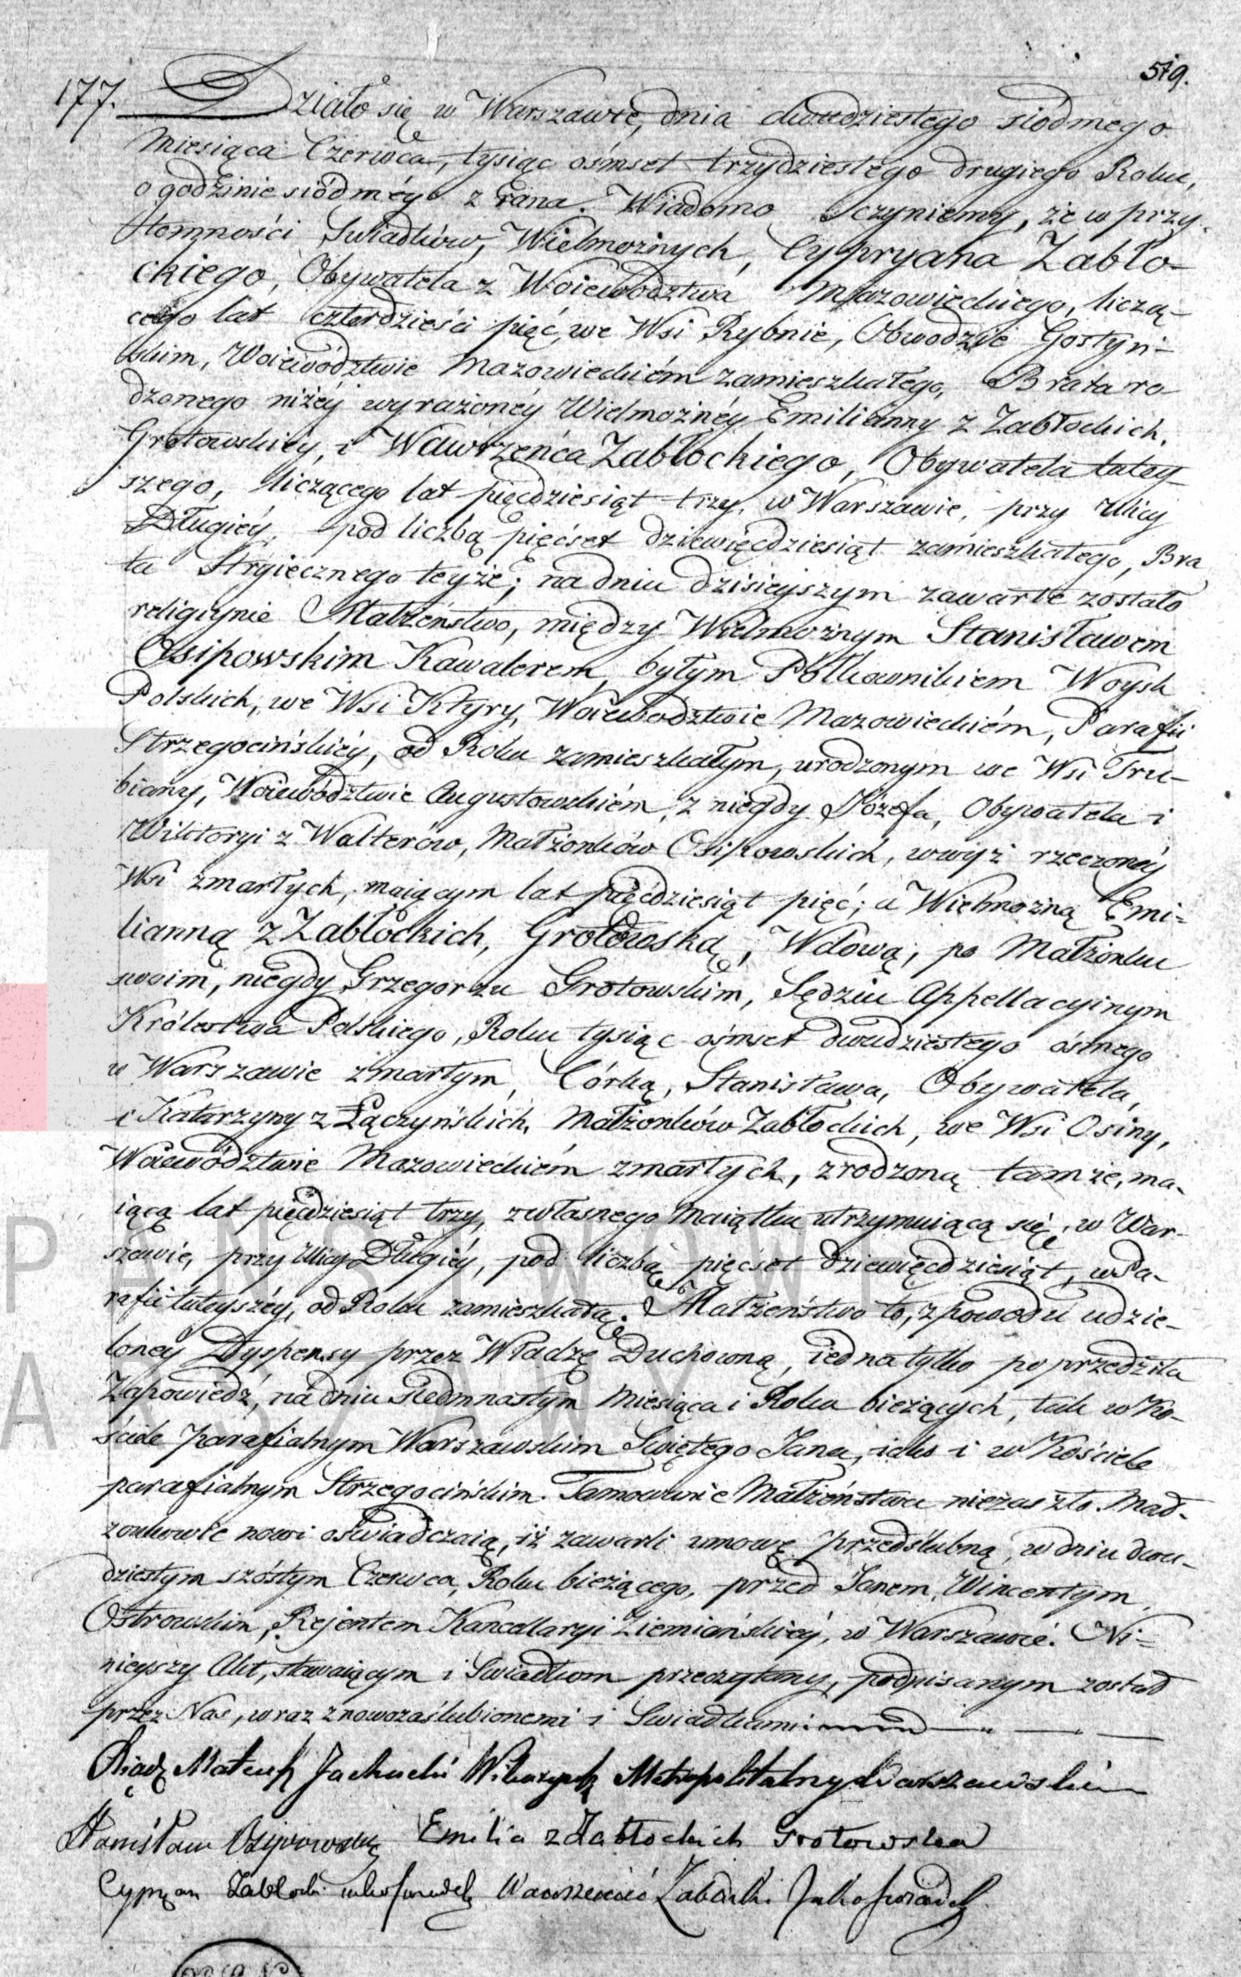 519.
177. Działo się w Warszawie, dnia dwudziestego siódmego
Miesiąca Czerwca, tysiąc ośmset trzydziestego drugiego Roku,
o godzinie siódméy z rana. Wiadomo czyniemy, że w przy
tomności Świadków, Wielmożnych, Cypryana Zabło-
ckiego, Obywatela z Województwa Mazowieckiego, liczą-
cego lat czterdzieści pięć, we Wsi Rybnie, Obwodzie Gostyń-
skim, Woiewództwie Mazowieckiém zamieszkałego, Brata ro-
dzonego niżéy wyrażonéy Wielmożnéy Emilianny z Zabłockich,
Grotowskiéy, i Wawrzeńca Zabłockiego, Obywatela tutey-
szego, liczącego lat pięćdziesiąt trzy, w Warszawie, przy Ulicy
Długiéy, pod liczbą pięćset dziewięćdziesiąt zamieszkałego, Bra
ta Stryiecznego teyże; na dniu dzisieyszym zawarte zostało
religiynie Małżeństwo, między Wielmożnym Stanisławem
Osipowskim Kawalerem, byłym Półkownikiem Woysk
Polskich, we Wsi Ktyry, Woiewództwie Mazowieckiém, Parafii
Strzegocińskiéy, od Roku zamieszkałym, urodzonym we Wsi Tru-
biany, Woiewództwie Augustowskiém, z niegdy Józefa, Obywatela i
Wiktoryi z Walterów, Małżonków Osipowskich, w wyż rzeczonéy
Wsi zmarłych, maiącym lat pięćdziesiąt pięć; a Wielmożną Emi-
lianną z Zabłockich, Grotowską, Wdową, po Małżonku
swoim, niegdy Grzegorzu Grotowskim, Sędziu Appellacyinym
Królestwa Polskiego, Roku tysiąc ośmset dwudziestego ósmego
w Warszawie zmarłym, Córką, Stanisława, Obywatela,
i Katarzyny z Łączyńskich, Małżonków Zabłockich, we Wsi Osiny,
Woiewództwie Mazowieckiém zmarłych, zrodzoną tamże, ma-
iącą lat pięćdziesiąt trzy, z własnego maiątku utrzymuiącą się, w War-
szawie, przy Ulicy Długiéy, pod liczbą pięćset dziewięćdziesiąt, w Pa-
rafii tuteyszéy, od Roku zamieszkałą. Małżeństwo to, z powodu udzie-
lonéy Dyspensy przez Władzę Duchowną, iedna tylko poprzedziła
Zapowiedź, na dniu siedmnastym Miesiąca i Roku bieżących, tak w Ko-
ściele parafialnym Warszawskim Świętego Jana, iako i w Kościele
parafialnym Strzegocińskim. Tamowanie Małżeństwa niezaszło. Mał-
żonkowie nowi oświadczaią, iż zawarli umowę przedślubną, w dniu dwu-
dziestym szóstym Czerwca, Roku bieżącego, przed Janem, Wincentym,
Ostrowskim, Rejentem Kancellaryi Ziemiańskiéy, w Warszawie. Ni-
nieyszy Akt, stawaiącym i Świadkom przeczytany, podpisanym został
przez Nas, wraz z nowozaślubionemi i Świadkami
Xiądz Mateusz Wikaryusz Metropolitalny Warszawski
Stanisław Osipowski Emilia z Zabłockich Grotowska
Cypryan Zabłocki jako świadek Wawrzeniec Zabłocki Jako świadek
PAŃSTWOWE
WARSZAWY